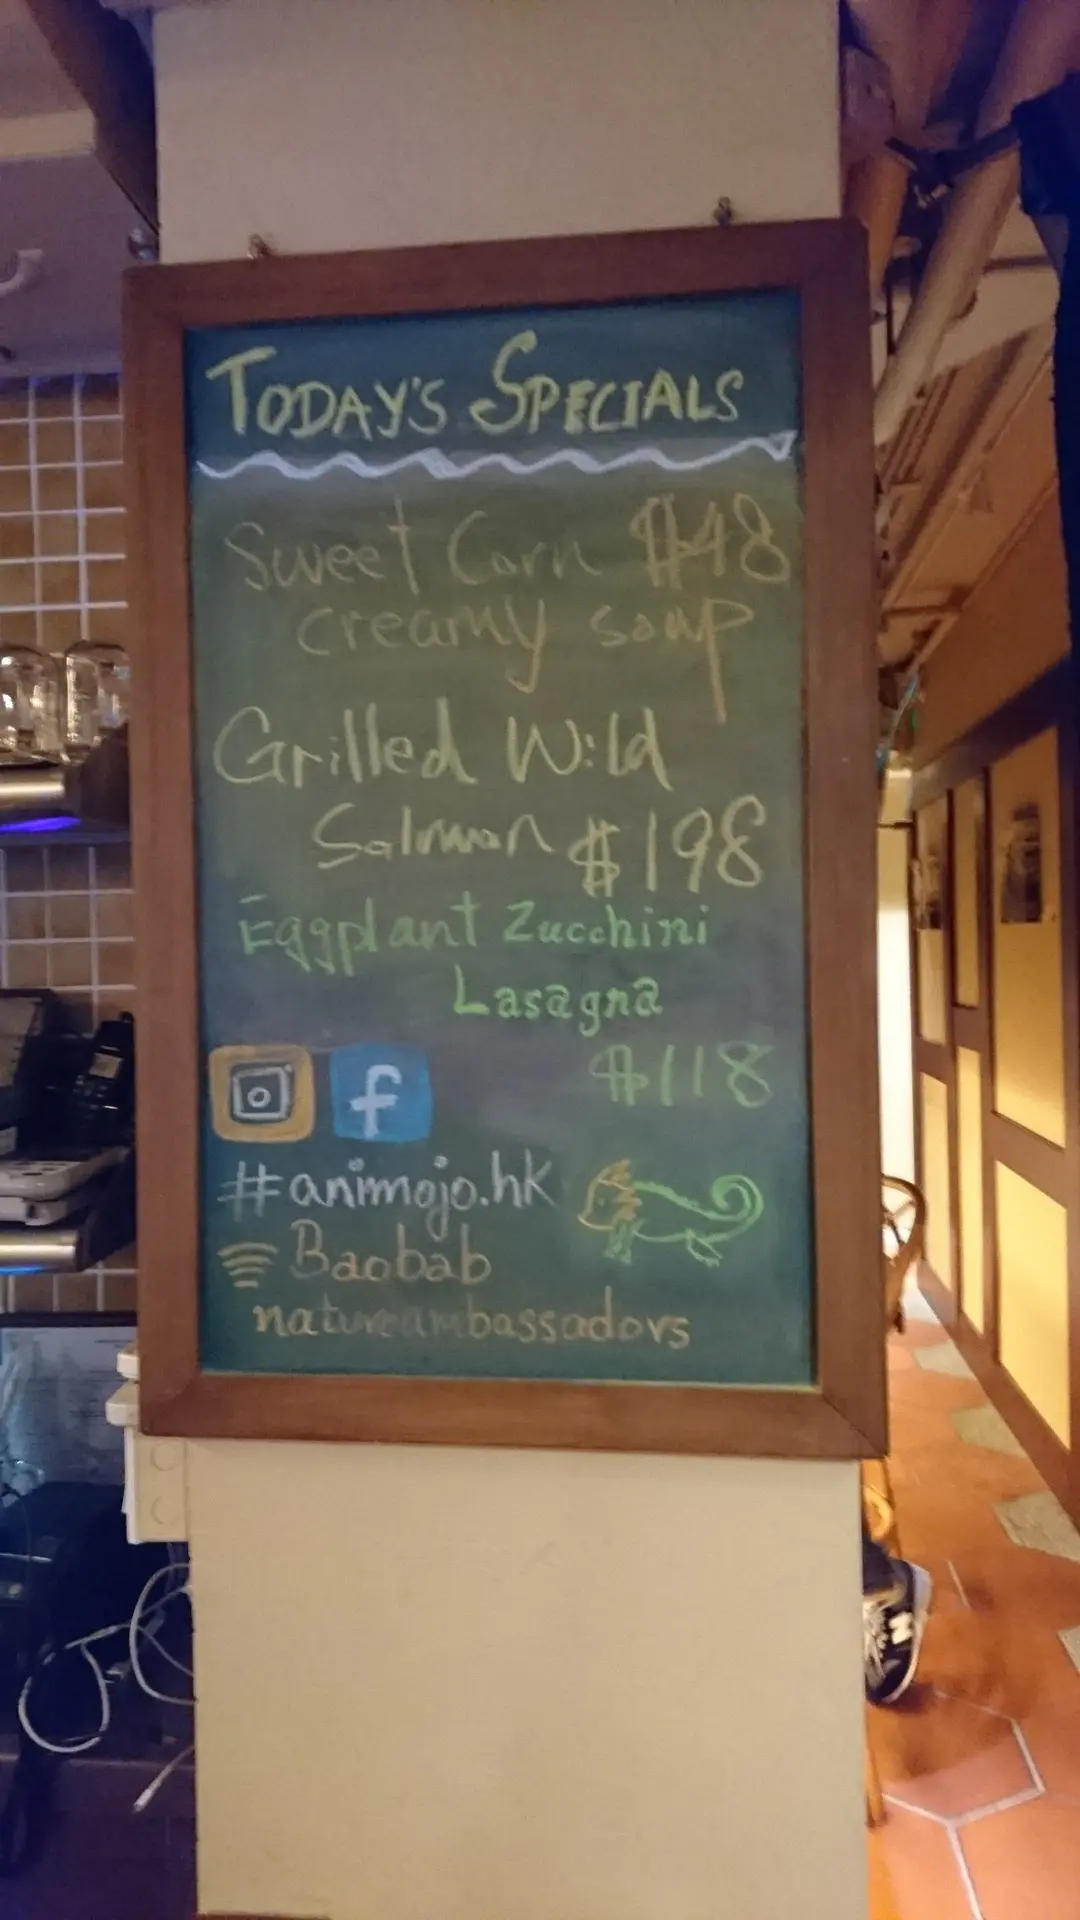 TODAY'S SPECIALS
Sweet Corn $48
creamy soup
Grilled Wild
Salmon $198
Eggplant Zucchini
Lasagna
$118
f
#animojo.hk
Baobab
natureambassadors